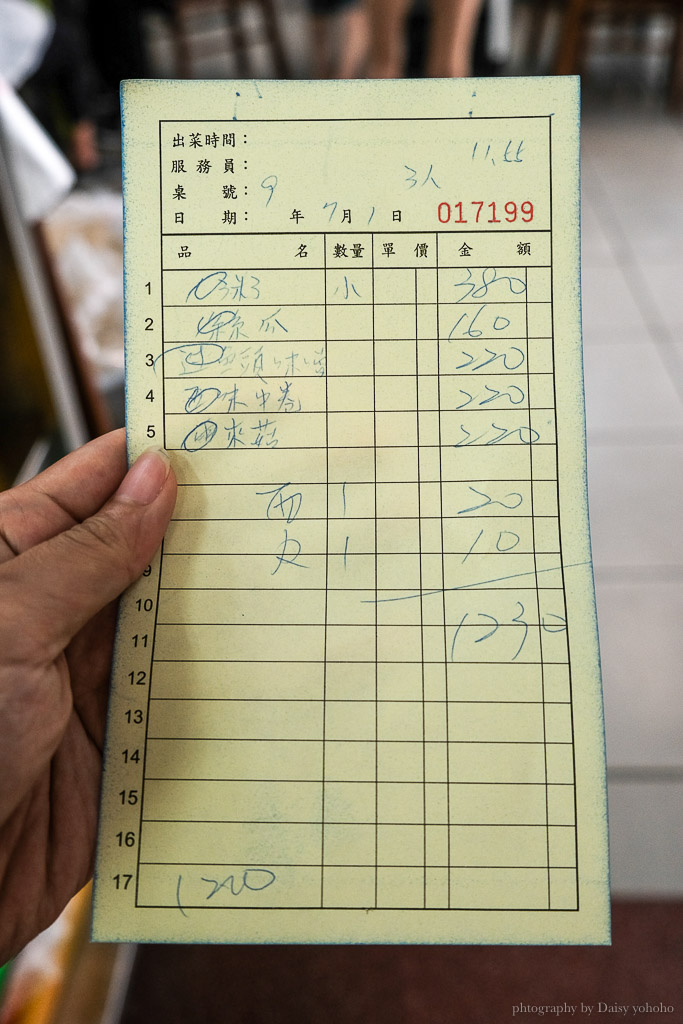 出菜時間： 11.55
服務員： 3人
桌號： 9
日期： 年 7月 1日 017199
品名 數量 單價 金額
1 小 380
2 絲瓜 160
3 魚頭味噌 220
4 五味中卷 220
5 來菇 220
1 20
1 10
9
10
11 1230
12
13
14
15
16
17 1200
photography by Daisy yohoho